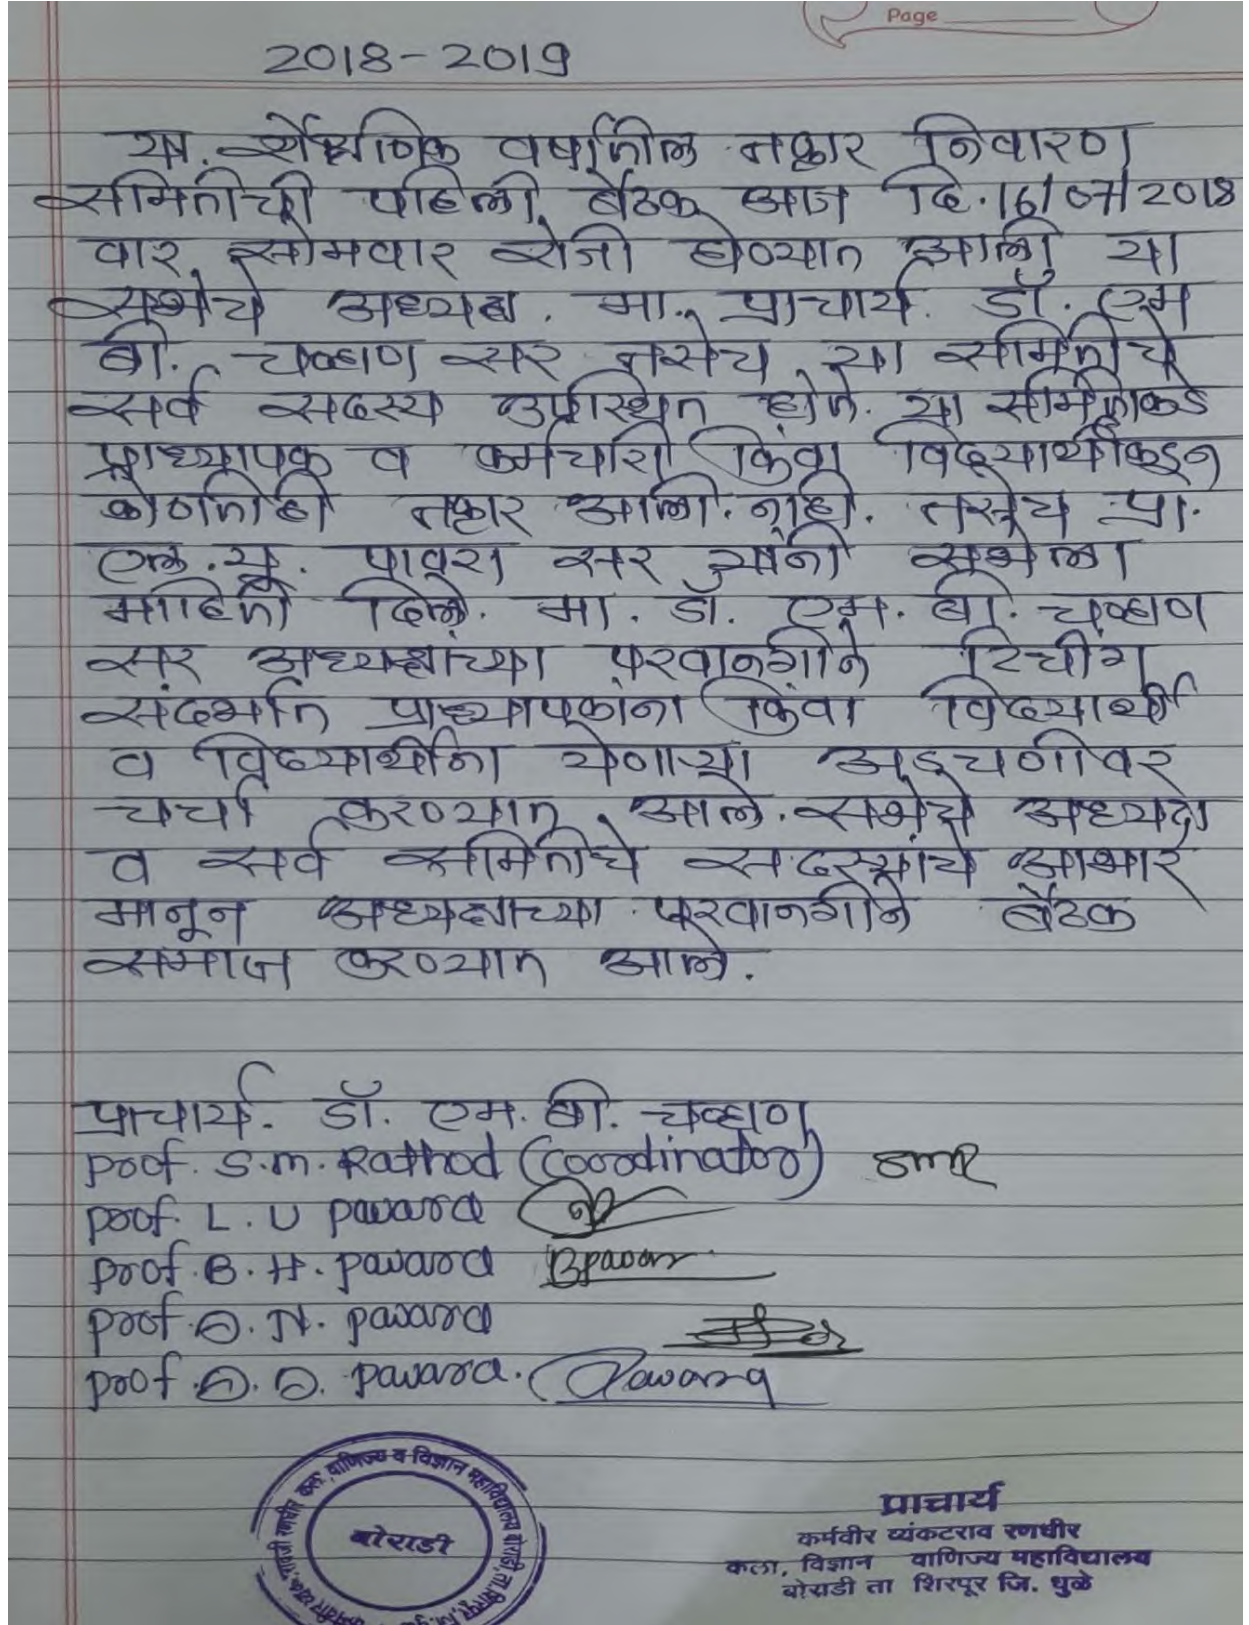 Page
2018-2019
या. शैक्षणिक वर्षातील तक्रार निवारण
समितीची पहिली बैठक आज दि.16/07/2018
वार सोमवार रोजी घेण्यात आली या
सभेचे अध्यक्ष. मा. प्राचार्य. डॉ. एम
बी. चव्हाण सर तसेच या समितीचे
सर्व सदस्य उपस्थित होते. या समितीकडे
प्राध्यापक व कर्मचारी किंवा विद्यार्थीकडून
कोणतीही तक्रार आली. नाही. तसेच प्रा.
एल.यू. पावरा सर यांनी सभेला
माहिती दिली. मा. डॉ. एम. बी. चव्हाण
सर अध्यक्षांच्या परवानगीने टिचींग
संदर्भात प्राध्यापकांना किंवा विद्यार्थी
व विद्यार्थीना येणाऱ्या अडचणीवर
चर्चा करण्यात आले. सभेचे अध्यक्ष
व सर्व समितीचे सदस्यांचे आभार
मानून अध्यक्षाच्या परवानगीने बैठक
समाप्त करण्यात आले.
प्राचार्य. डॉ. एम. बी. चव्हाण
prof. S.M. Rathod (Coordinator) SMR
prof. L. U pawara
prof. B. H. pawara Bpawar
prof. D. N. pawara
prof. D. D. pawara. Pawara
कला, वाणिज्य व विज्ञान महाविद्यालय बोराडी, ता. शिरपूर, जि.
बोराडी
प्राचार्य
कर्मवीर व्यंकटराव रणधीर
कला, विज्ञान वाणिज्य महाविद्यालय
बोराडी ता शिरपूर जि. धुळे